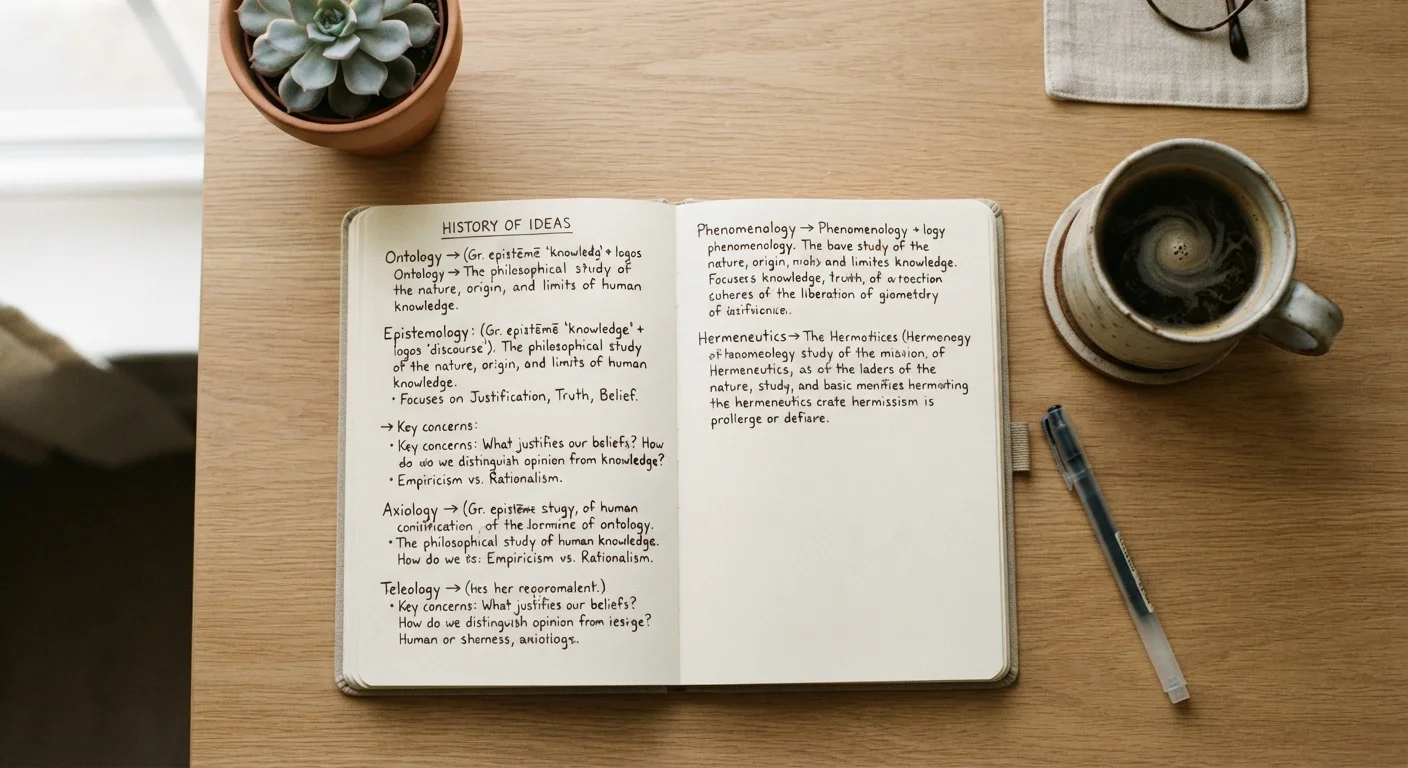 HISTORY OF IDEAS
Ontology → (Gr. epistēmē 'knowledg' + logos
Ontology → The philosophical study of
the nature, origin, and limits of human
knowledge.
Epistemology: (Gr. epistēmē 'knowledge' +
logos 'discourse'). The philosophical study
of the nature, origin, and limits of human
knowledge.
• Focuses on Justification, Truth, Belief.
→ Key concerns:
• Key concerns: What justifies our beliefs? How
do we distinguish opinion from knowledge?
• Empiricism vs. Rationalism.
Axiology → (Gr. epistēme stugy, of human
of the of ontology.
• The philosophical study of human knowledge.
How do we Empiricism vs. Rationalism.
Teleology → (hes her reporomalent.)
• Key concerns: What justifies our beliefs?
How do we distinguish opinion from
Human or sherness,
Phenomenalogy → Phenomenology + logy
phenomenology. The bave study of the
nature, origin, and limites knowledge.
Focuses knowledge, truth, of
of the liberation of giometdry
of
Hermeneutics → The Hermotices (Hermenogy
study of the of
Hermeneutics, as of the laders of the
nature, study, and basic
the hermeneutics crate hermissism is
prollerge or defiare.